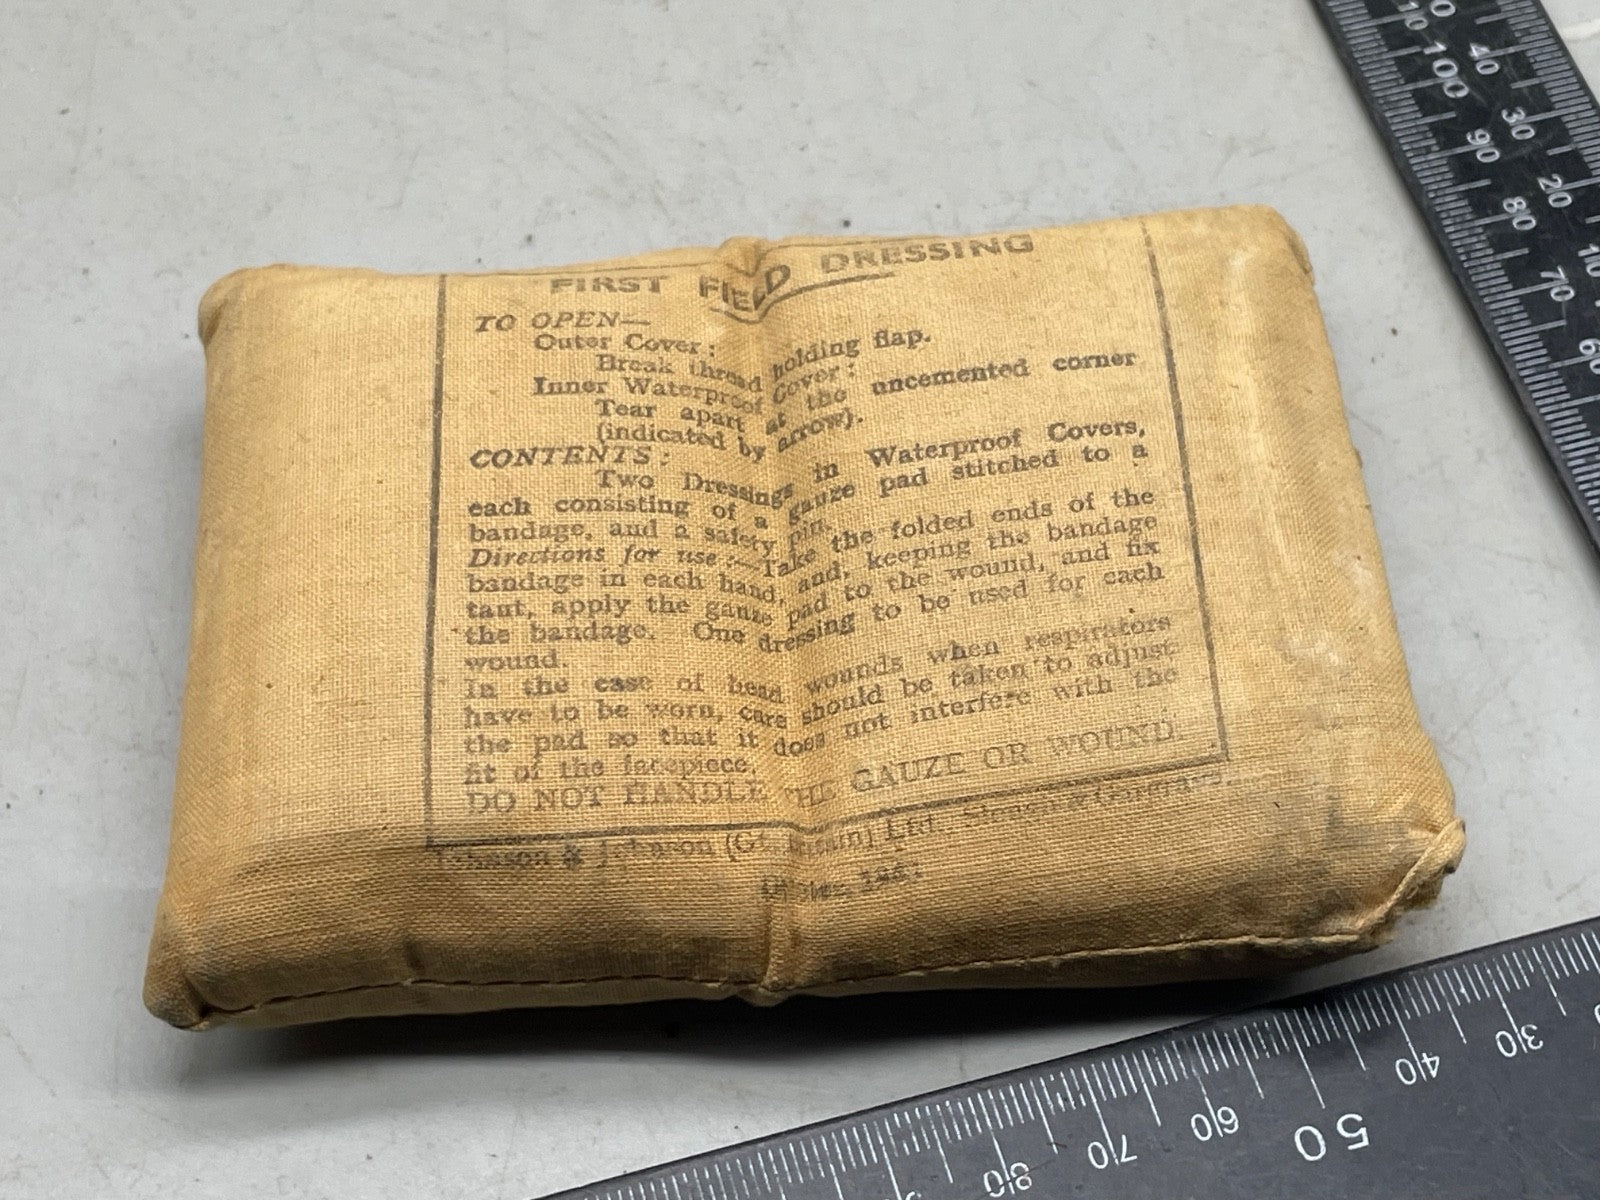 FIRST FIELD DRESSING
TO OPEN—
Outer Cover:
Break thread holding flap.
Inner Waterproof Cover:
Tear apart at the uncemented corner
(indicated by arrow).
CONTENTS:
Two Dressings in Waterproof Covers,
each consisting of a gauze pad stitched to a
bandage, and a safety pin.
Directions for use:—Take the folded ends of the
bandage in each hand, and, keeping the bandage
taut, apply the gauze pad to the wound, and fix
the bandage. One dressing to be used for each
wound.
In the case of head wounds when respirators
have to be worn, care should be taken to adjust
the pad so that it does not interfere with the
fit of the facepiece.
DO NOT HANDLE THE GAUZE OR WOUND.
Johnson & Johnson (Gt. Britain) Ltd.,
40 30 20 10
100 90 80 70 60
30 40 50 60 70 80